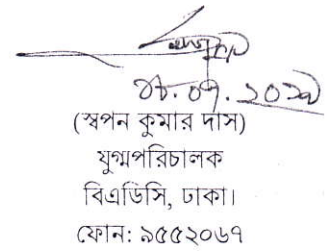 (স্বপন কুমার দাস)
যুগ্মপরিচালক
বিএডিসি, ঢাকা।
ফোন: ৯৫৫২০৬৭